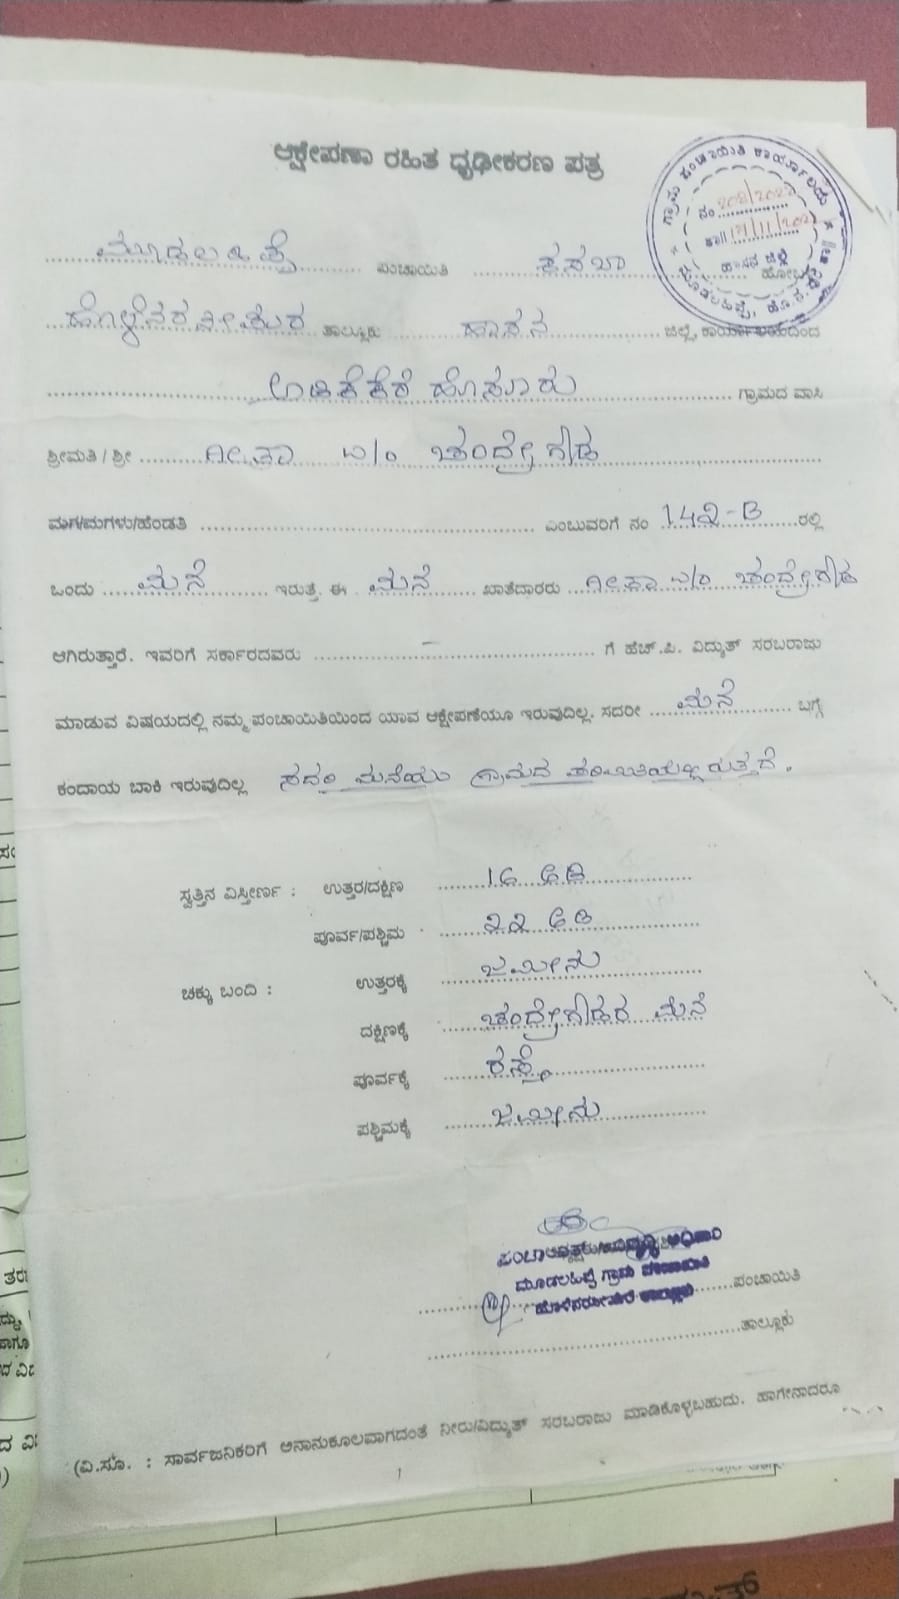 ಆಕ್ಷೇಪಣಾ ರಹಿತ ಧೃಢೀಕರಣ ಪತ್ರ
ಗ್ರಾಮ ಪಂಚಾಯಿತಿ ಕಾರ್ಯಾಲಯ
ನಂ
ಹಾಸನ ಜಿಲ್ಲೆ
ಮೂಡಲಹಿಪ್ಪೆ ಪಂಚಾಯಿತಿ ಕಸಬಾ ಹೋಬಳಿ
ಹೊಳೆನರಸೀಪುರ ತಾಲ್ಲೂಕು ಹಾಸನ ಜಿಲ್ಲೆ, ಕಾರ್ಯಾಲಯದಿಂದ
ಅಡಿಕೆಕೆರೆ ಹೊಸೂರು ಗ್ರಾಮದ ವಾಸಿ
ಶ್ರೀಮತಿ / ಶ್ರೀ ಗೀತಾ w/o ಚಂದ್ರೇಗೌಡ
ಮಗ/ಮಗಳು/ಹೆಂಡತಿ ಎಂಬುವರಿಗೆ ನಂ 142-B ರಲ್ಲಿ
ಒಂದು ಮನೆ ಇರುತ್ತೆ. ಈ ಮನೆ ಖಾತೆದಾರರು ಗೀತಾ w/o ಚಂದ್ರೇಗೌಡ
ಆಗಿರುತ್ತಾರೆ. ಇವರಿಗೆ ಸರ್ಕಾರದವರು – ಗೆ ಹೆಚ್.ಪಿ. ವಿದ್ಯುತ್ ಸರಬರಾಜು
ಮಾಡುವ ವಿಷಯದಲ್ಲಿ ನಮ್ಮ ಪಂಚಾಯಿತಿಯಿಂದ ಯಾವ ಆಕ್ಷೇಪಣೆಯೂ ಇರುವುದಿಲ್ಲ. ಸದರೀ ಮನೆ ಬಗ್ಗೆ
ಕಂದಾಯ ಬಾಕಿ ಇರುವುದಿಲ್ಲ ಸದರಿ ಮನೆಯು ಗ್ರಾಮದ
ಸ್ವತ್ತಿನ ವಿಸ್ತೀರ್ಣ : ಉತ್ತರ/ದಕ್ಷಿಣ 16 ಅಡಿ
ಪೂರ್ವ/ಪಶ್ಚಿಮ ೨೨ ಅಡಿ
ಚಕ್ಕು ಬಂದಿ : ಉತ್ತರಕ್ಕೆ ಜಮೀನು
ದಕ್ಷಿಣಕ್ಕೆ ಚಂದ್ರೇಗೌಡರ ಮನೆ
ಪೂರ್ವಕ್ಕೆ ರಸ್ತೆ
ಪಶ್ಚಿಮಕ್ಕೆ ಜಮೀನು
ಮೂಡಲಹಿಪ್ಪೆ ಗ್ರಾಮ ಪಂಚಾಯಿತಿ
ಪಂಚಾಯಿತಿ
ತಾಲ್ಲೂಕು
(ವಿ.ಸೂ. : ಸಾರ್ವಜನಿಕರಿಗೆ ಅನಾನುಕೂಲವಾಗದಂತೆ ನೀರು/ವಿದ್ಯುತ್ ಸರಬರಾಜು ಮಾಡಿಕೊಳ್ಳಬಹುದು. ಹಾಗೇನಾದರೂ